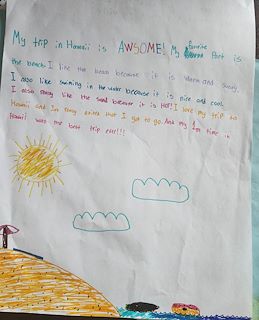 My trip in Hawaii is AWSOME! My favorite Part is
the beach. I like the beach because it is warm and sunny.
I also like swiming in the water because it is nice and cool.
I also enjoy like the sand because it is HOT! I love my trip to
Hawaii and I'm enjoy exited that I got to go. And my 1st time in
Hawaii was the best trip ever!!!